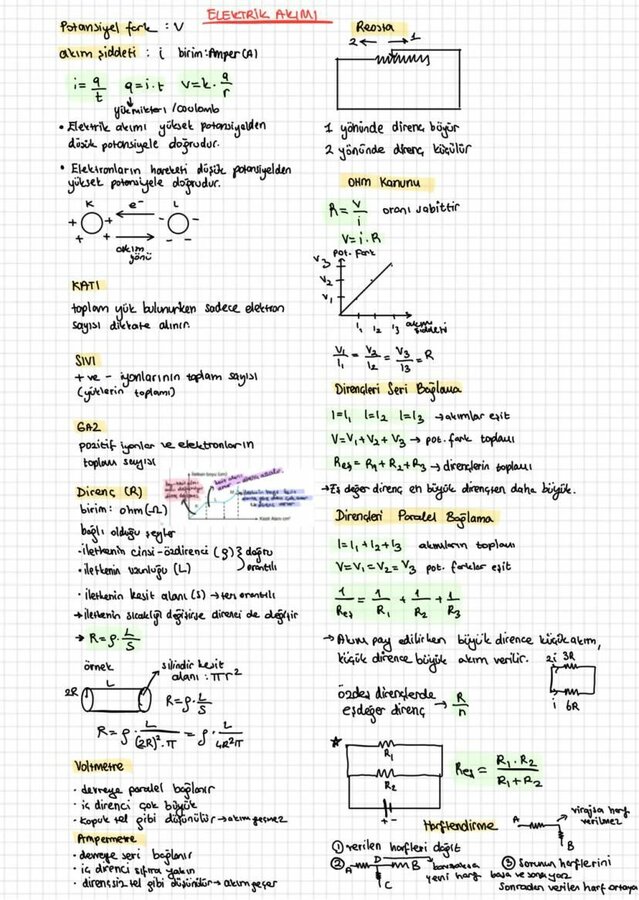 ELEKTRİK AKIMI
Potansiyel fark : V
akım şiddeti : i birim: Amper (A)
i = q/t q = i.t V = k. q/r
yük miktarı /coulomb
• Elektrik akımı yüksek potansiyelden
düşük potansiyele doğrudur.
• Elektronların hareketi düşük potansiyelden
yüksek potansiyele doğrudur.
K e⁻ L
+ + + + - - - -
akım
yönü
KATI
toplam yük bulunurken sadece elektron
sayısı dikkate alınır.
SIVI
+ ve - iyonlarının toplam sayısı
(yüklerin toplamı)
GAZ
pozitif iyonlar ve elektronların
toplam sayısı
Direnç (R)
birim: ohm (Ω)
bağlı olduğu şeyler
- iletkenin cinsi - özdirenci (ρ) } doğru
- iletkenin uzunluğu (L) } orantılı
- iletkenin kesit alanı (S) → ters orantılı
→ iletkenin sıcaklığı değişirse direnci de değişir
→ R = ρ. L/S
örnek
silindir kesit
alanı : πr²
L
2R
R = ρ. L/S
R = ρ. L/(2R)².π = ρ. L/4R²π
Voltmetre
• devreye paralel bağlanır
• iç direnci çok büyük
• kopuk tel gibi düşünülür → akım geçmez
Ampermetre
• devreye seri bağlanır
• iç direnci sıfıra yakın
• dirençsiz tel gibi düşünülür → akım geçer
Reosta
2 1
1 yönünde direnç büyür
2 yönünde direnç küçülür
OHM Kanunu
R = V/i oranı sabittir
V = i.R
pot. fark
V3
V2
V1
I1 I2 I3 akım
şiddeti
V1/I1 = V2/I2 = V3/I3 = R
Dirençleri Seri Bağlama
I = I1 I = I2 I = I3 → akımlar eşit
V = V1 + V2 + V3 → pot. fark toplamı
Reş = R1 + R2 + R3 → dirençlerin toplamı
→ Eş değer direnç en büyük dirençten daha büyük.
Dirençleri Paralel Bağlama
I = I1 + I2 + I3 akımların toplamı
V = V1 = V2 = V3 pot. farklar eşit
1/Reş = 1/R1 + 1/R2 + 1/R3
→ Akım pay edilirken büyük dirence küçük akım,
küçük dirence büyük akım verilir.
2i 3R
i 6R
özdeş dirençlerde
eşdeğer direnç → R/n
R1
R2
+ -
Reş = R1.R2/R1+R2
Harflendirme
A B
virajsa harf
verilmez
① verilen harfleri dağıt
② A D B C
yeni harf
③ Sorunun harflerini
başa ve sona yaz
Sonradan verilen harf ortaya